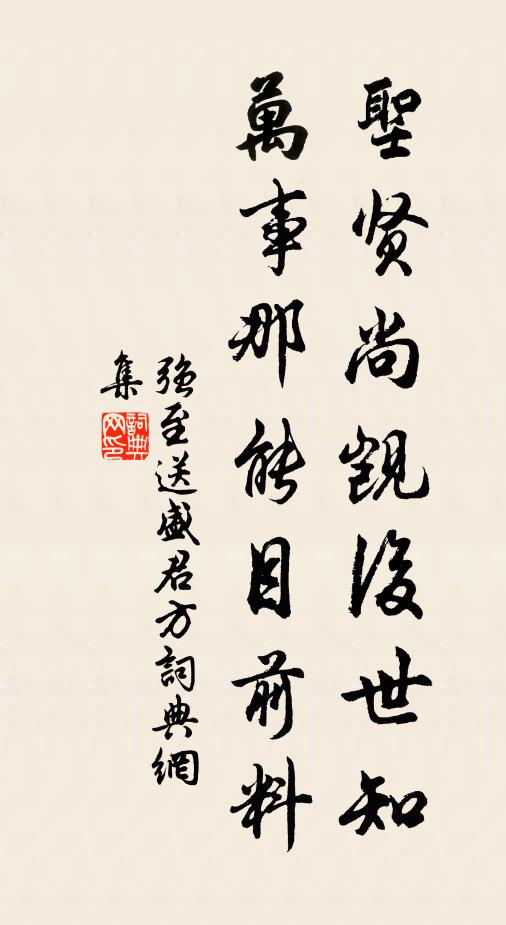 聖贤尚觊後世知
萬事那能目前料
強至送盛君方詞典網
集
詞典
网印